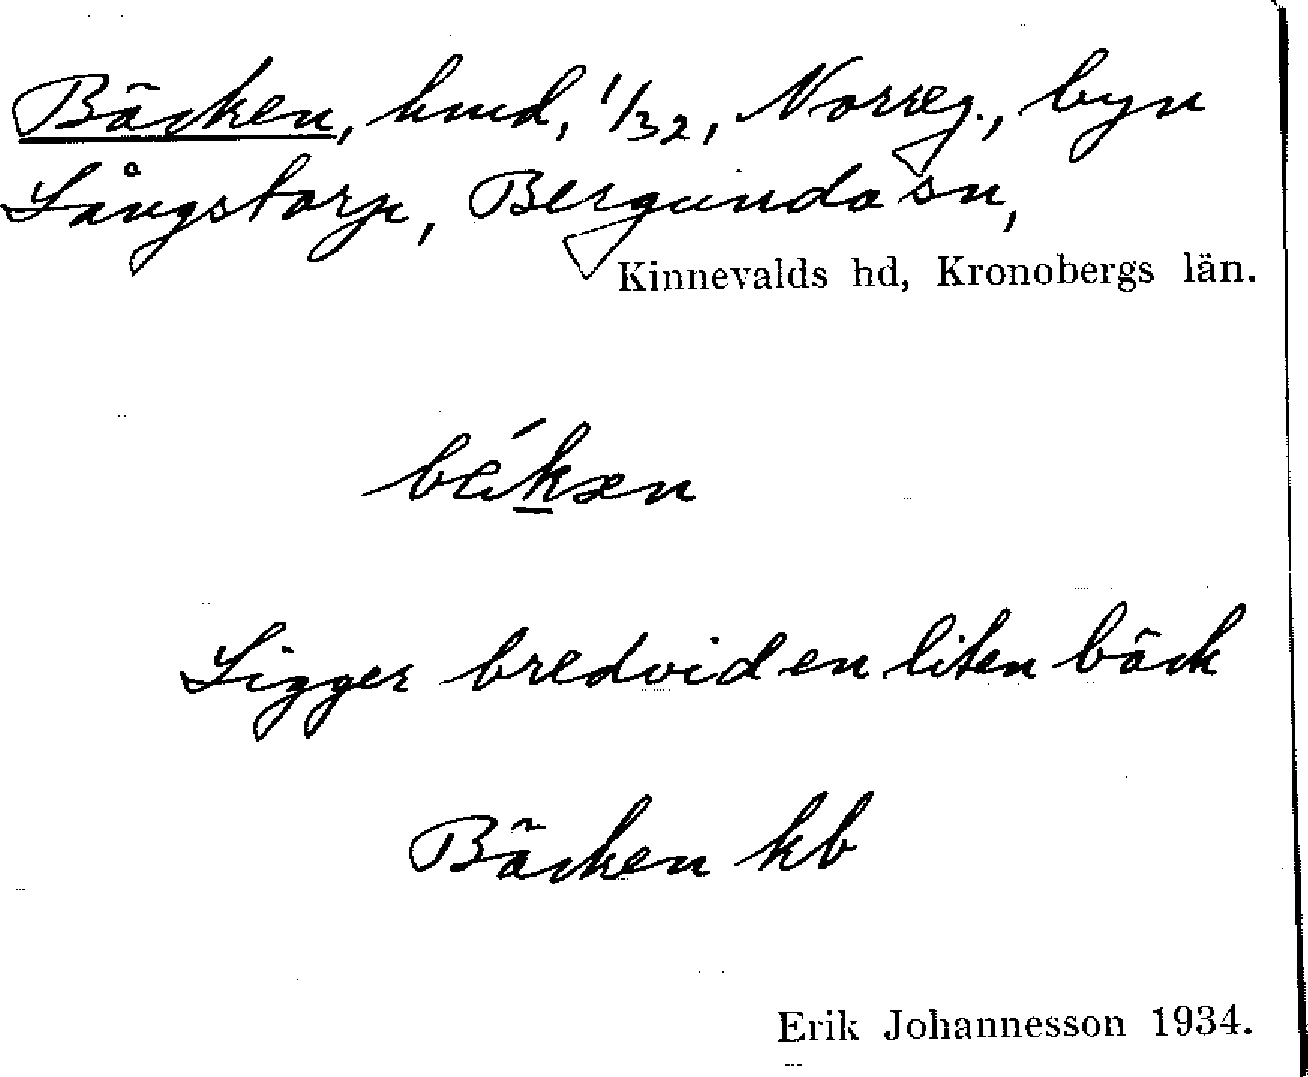 Bäcken, hmd, 1/32, Norreg., byn
Långstorp, Bergunda sn,
Kinnevalds hd, Kronobergs län.
Ligger bredvid en liten bäck
Bäcken kb
Erik Johannesson 1934.